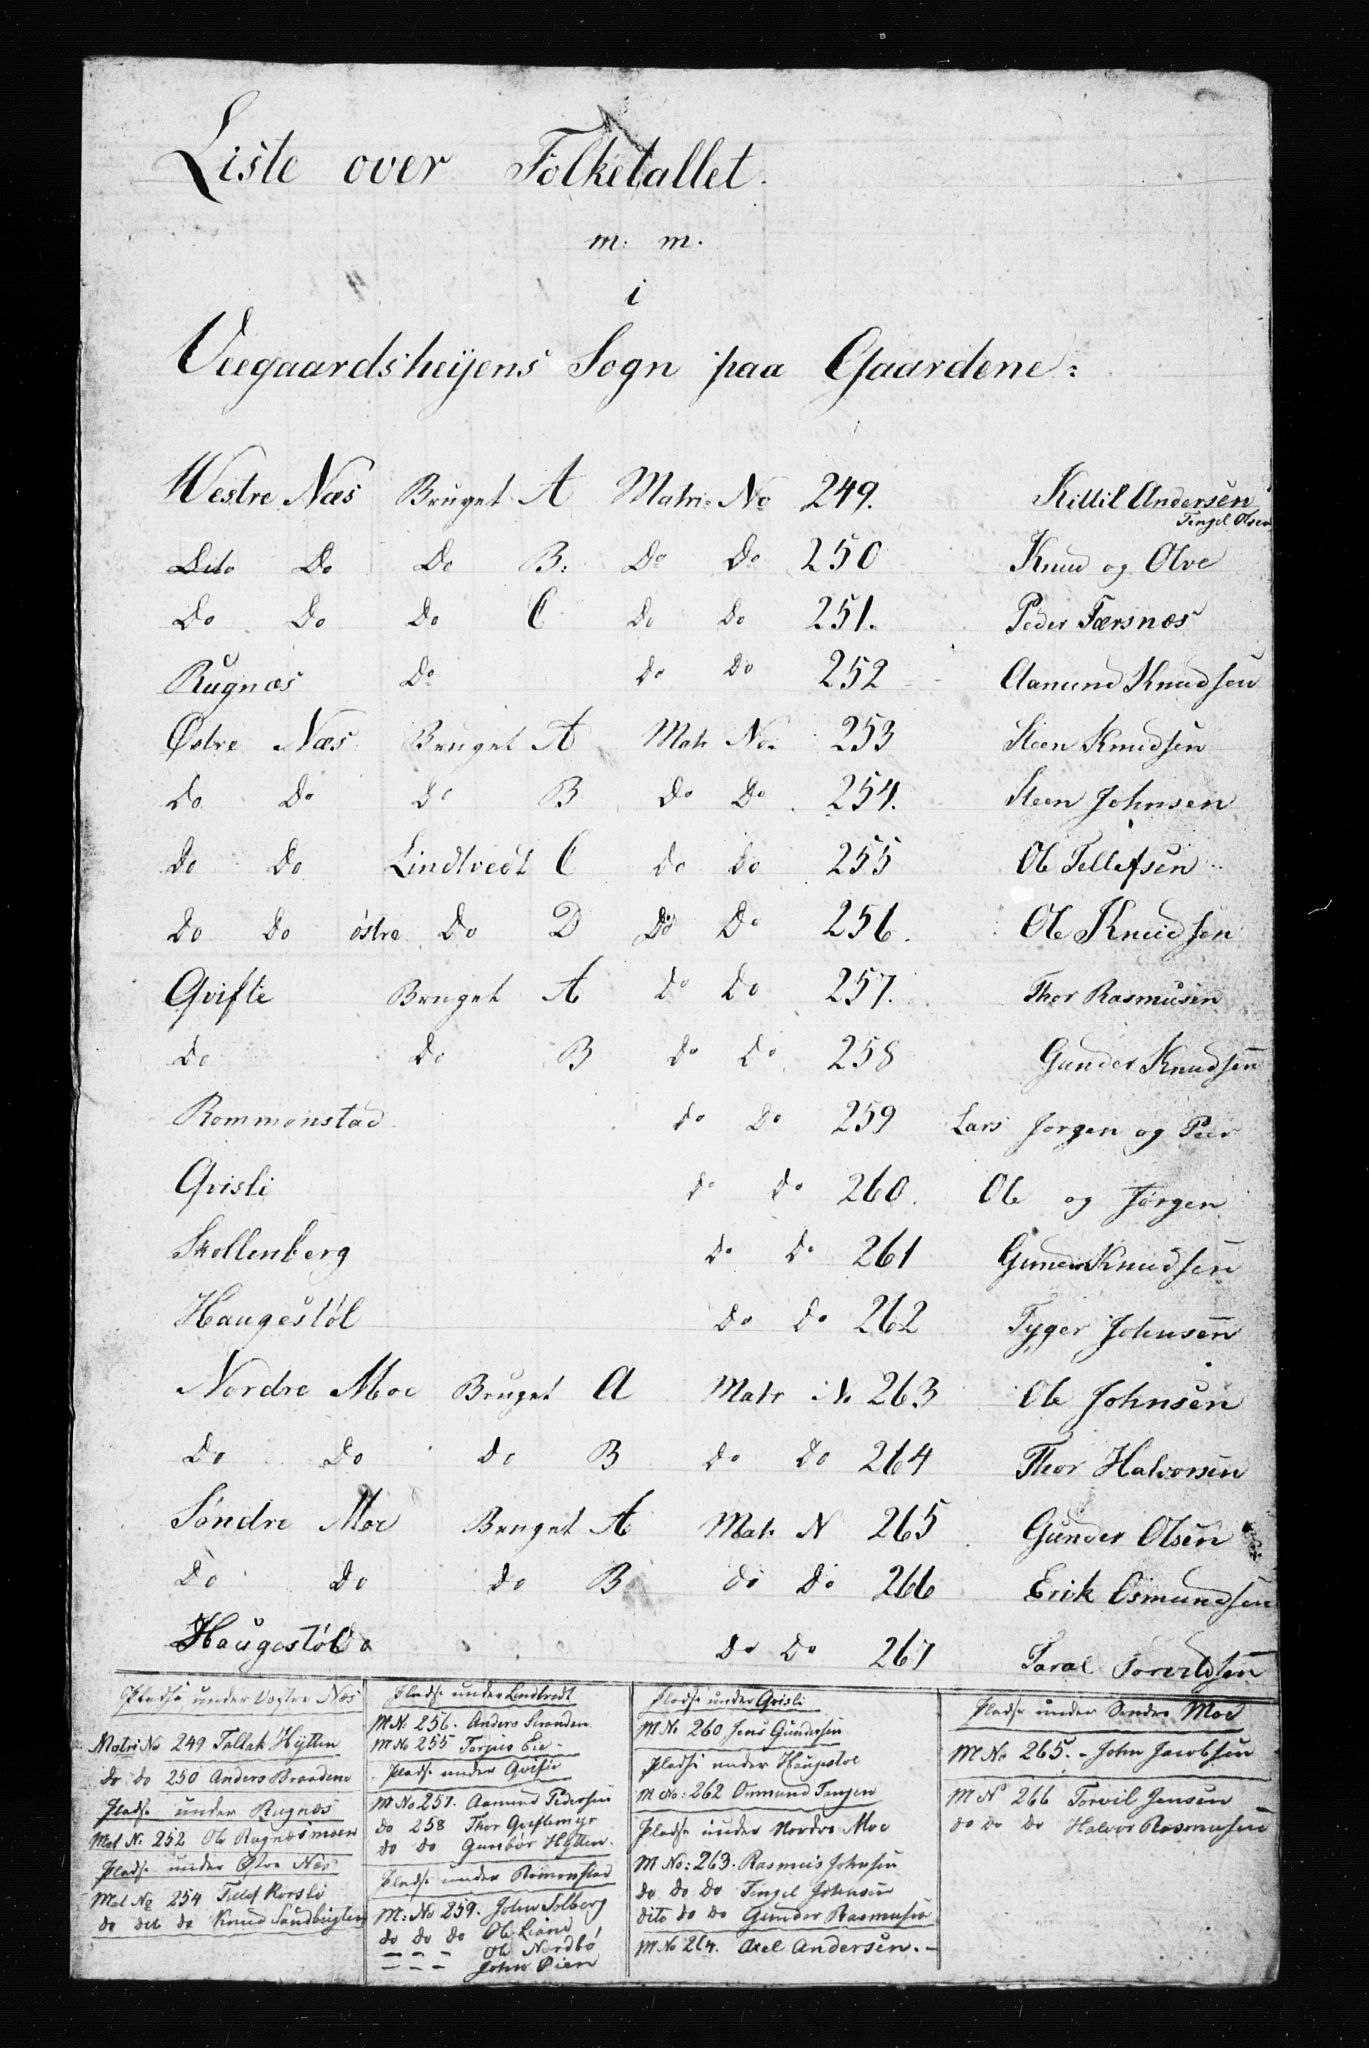 Liste over Folketallet.
m. m.
i
Veegaardsheijens Sogn paa Gaardene:
Westre Næs Bruget A Matri: No 249. Kittil Andersen
Tengel Olsen
Dito Do Do B: Do Do 250 Knud og Olve
Do Do Do C Do Do 251. Peder Færsnæs
Rugnæs Do Do Do 252 Aamund Knudsen
Østre Næs Bruget A Matr No. 253 Steen Knudsen
Do Do Do B Do Do 254. Steen Johnsen
Do Do Lindtvedt C Do Do 255 Ole Tellefsen
Do Do østre Do D Do Do 256. Ole Knudsen
Qvifte Bruget A Do Do 257. Thor Rasmusen
Do Do B Do Do 258 Gunder Knudsen
Rommonstad Do Do 259 Lars Jørgen og Peer
Qvisli Do Do 260. Ole og Jørgen
Skollenberg Do Do 261 Gunder Knudsen
Haugestøl Do Do 262 Tyger Johnsen
Nordre Moe Bruget A Matr No 263 Ole Johnsen
Do Do Do B Do Do 264 Thor Halvorsen
Søndre Moe Bruget A Matr N 265 Gunder Olsen
Do Do Do B Do Do 266 Erik Osmundsen
Haugestøl Do Do 267 Taral Torvildsen
Pladse under Vestre Næs
Matri No 249 Tallak Hytten
do do 250 Anders Braadene
Pladse under Rugnæs
Mat No 252 Ole Rugnæsmoen
Pladse under Østre Næs
Mat No 254 Tellef Korsli
do det do Knud Sandbugten
Pladse under Lindtvedt
M No. 256. Anders Stranden
M No 255 Torjus Lie
Pladse under Qvifte
M No 257. Aamund Pedersen
do 258 Thor Qviftemyr
do do Gunbør Hytten.
Pladse under Romonstad
M: No 259. John Solberg
do do do Ole Liane
— — — Ole Nordbö
— — — John Øien
Pladse under Qvisli
M No 260 Jens Gundersen
Pladse under Haugestøl
M No: 262 Osmund Tangen
Pladse under Nordre Moe
M No: 263. Rasmus Johnsen
do do do Tengel Johnsen
dito do do Gunder Rasmusen
M No 264. Axel Andersen. —
Pladse under Søndre Moe
M No 265. - John Jacobsen
M No 266 Torvil Jensen
do do do Halvor Rasmusen